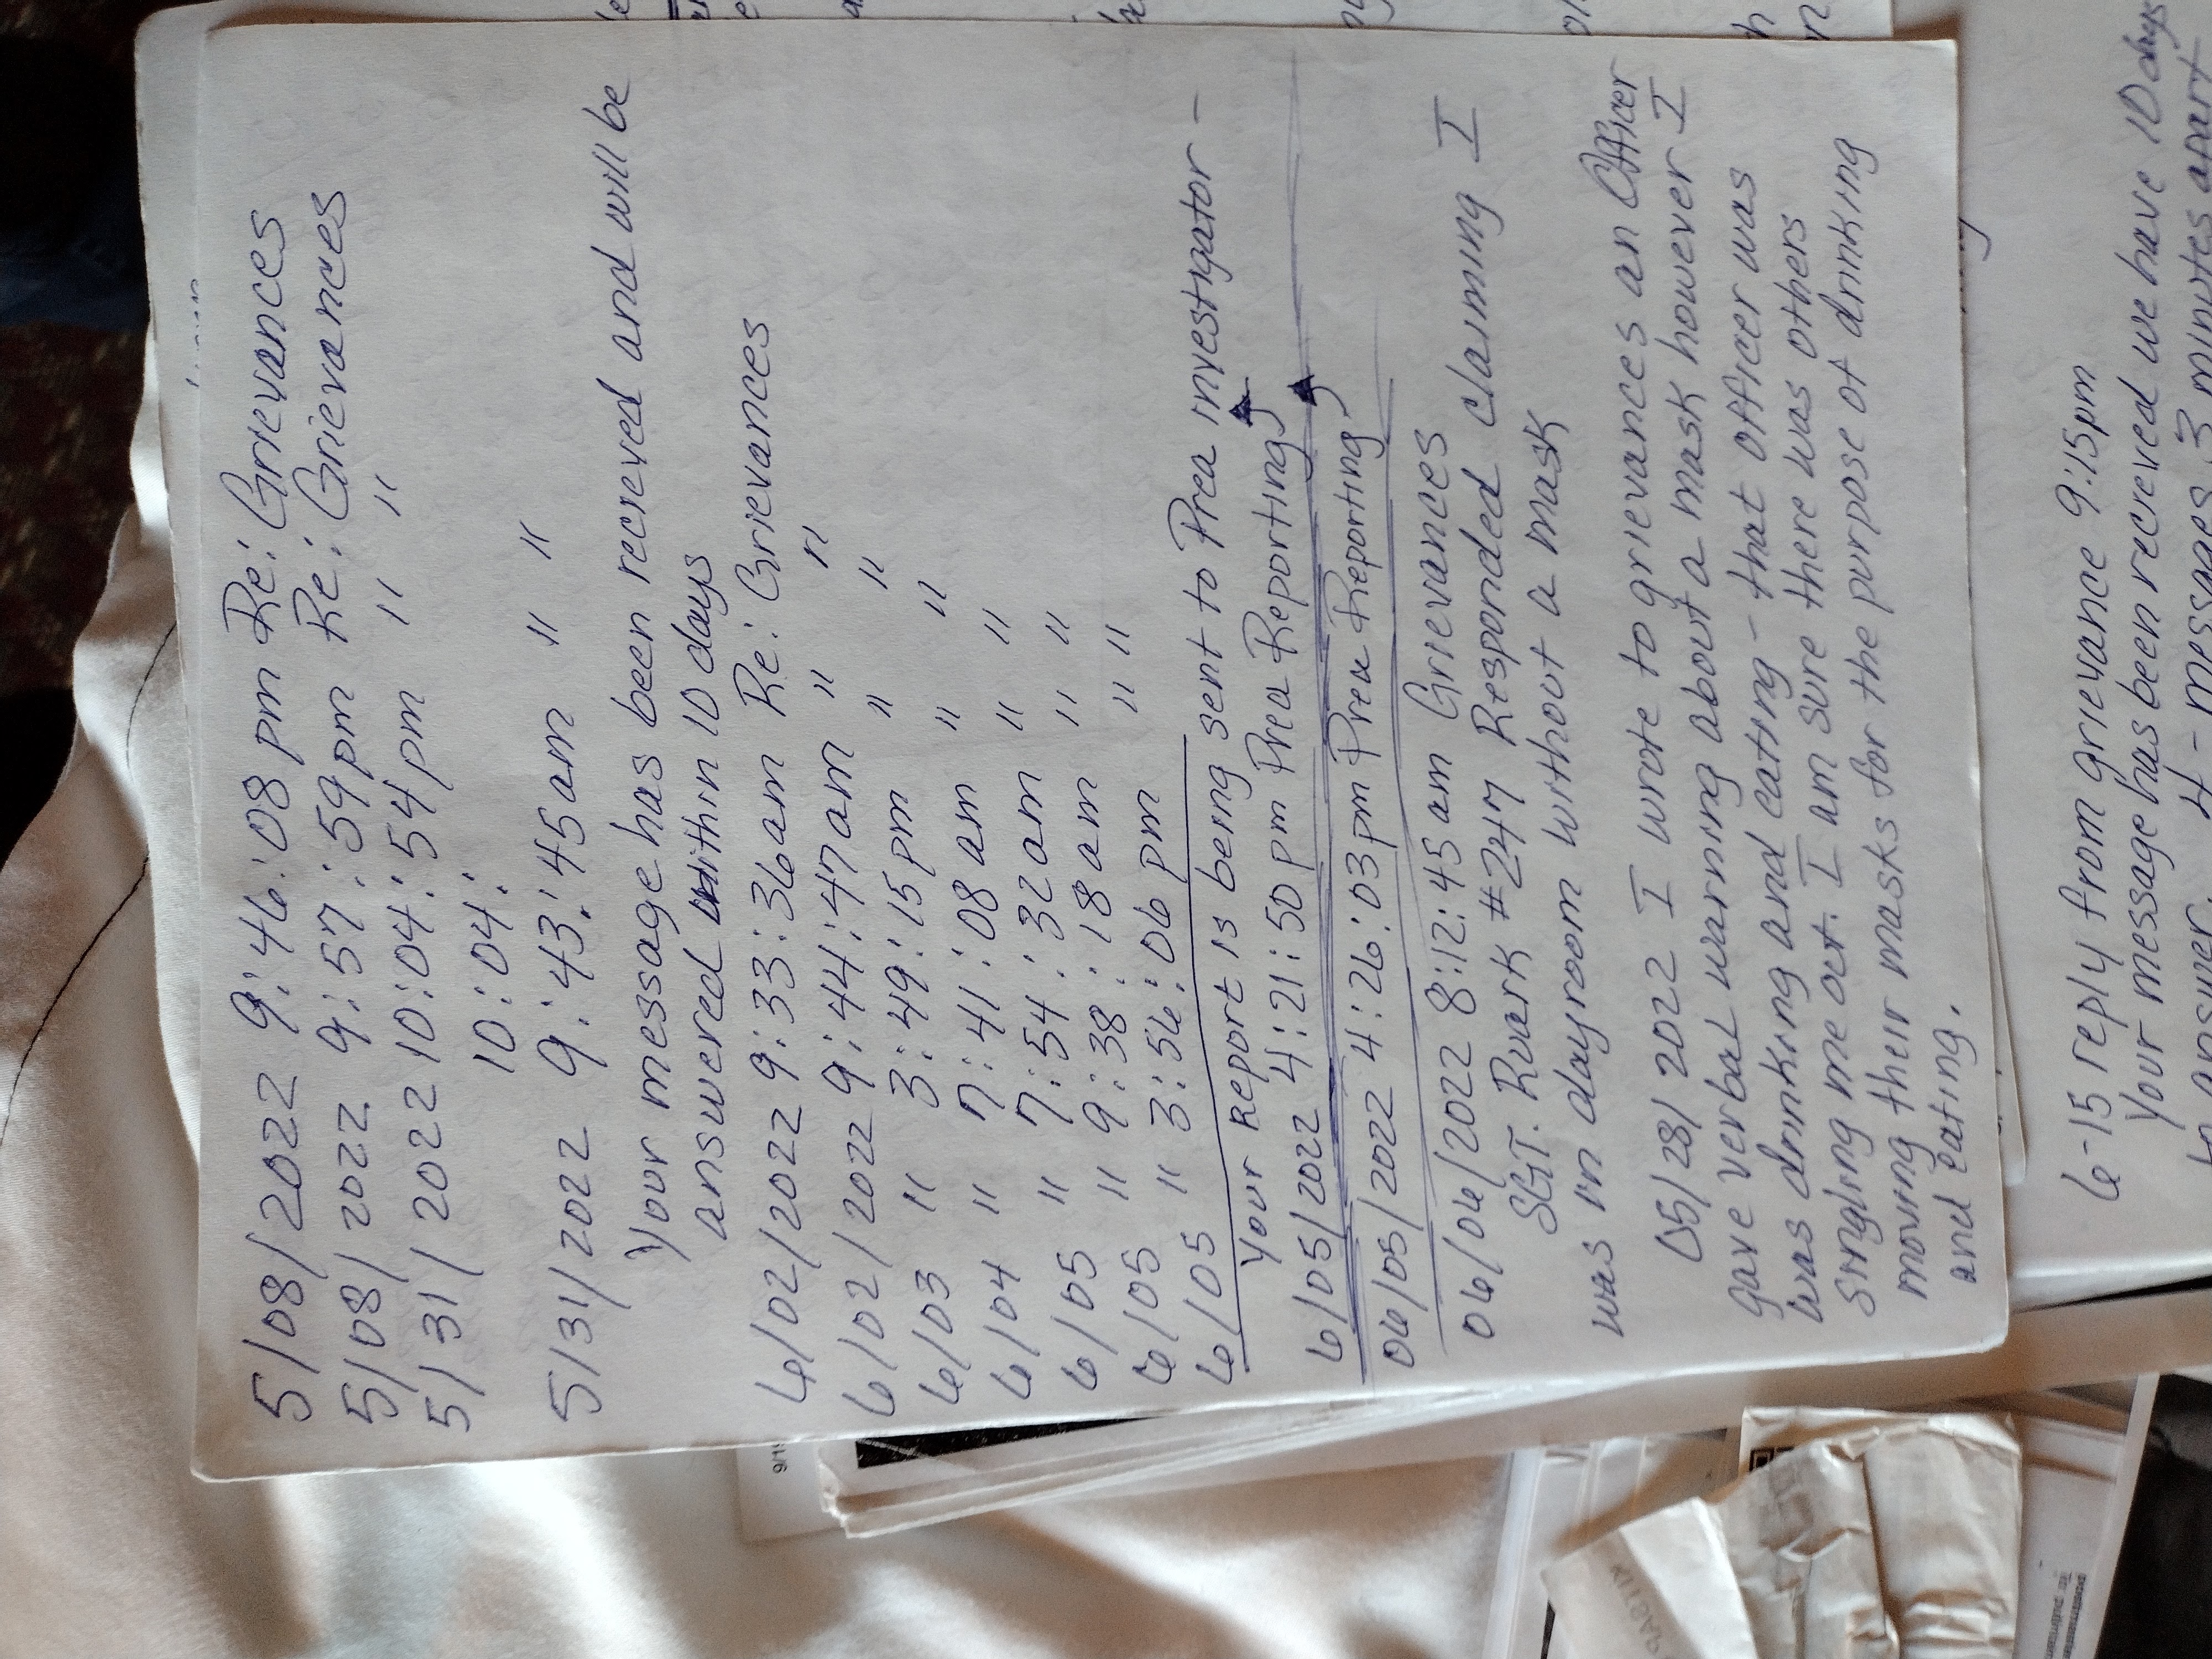 5/08/2022 9:46:08 pm Re: Grievances
5/08/2022 9:57:59 pm Re: Grievances
5/31/2022 10:04:54 pm " "
10:04:
5/31/2022 9:43:45 am " "
Your message has been recieved and will be
answered within 10 days
6/02/2022 9:33:36 am Re: Grievances
6/02/2022 9:44:47 am " "
6/03 " 3:49:15 pm " "
6/04 " 7:41:08 am " "
6/05 " 7:54:32 am " "
6/05 " 9:38:18 am " "
6/05 " 3:56:06 pm " "
Your Report is being sent to Prea investigator -
6/05/2022 4:21:50 pm Prea Reporting
06/05/2022 4:26:03 pm Prea Reporting
06/06/2022 8:12:45 am Grievances
SGT. Ruark #247 Responded claiming I
was in dayroom without a mask
05/28/2022 I wrote to grievances an Officer
gave verbal warning about a mask however I
was drinking and eating - that officer was
singling me out. I am sure there was others
moving their masks for the purpose of drinking
and eating.
6-15 reply from grievance 9:15pm
Your message has been recieved we have 10 days
to answer - messages 3 minutes apart
9/15